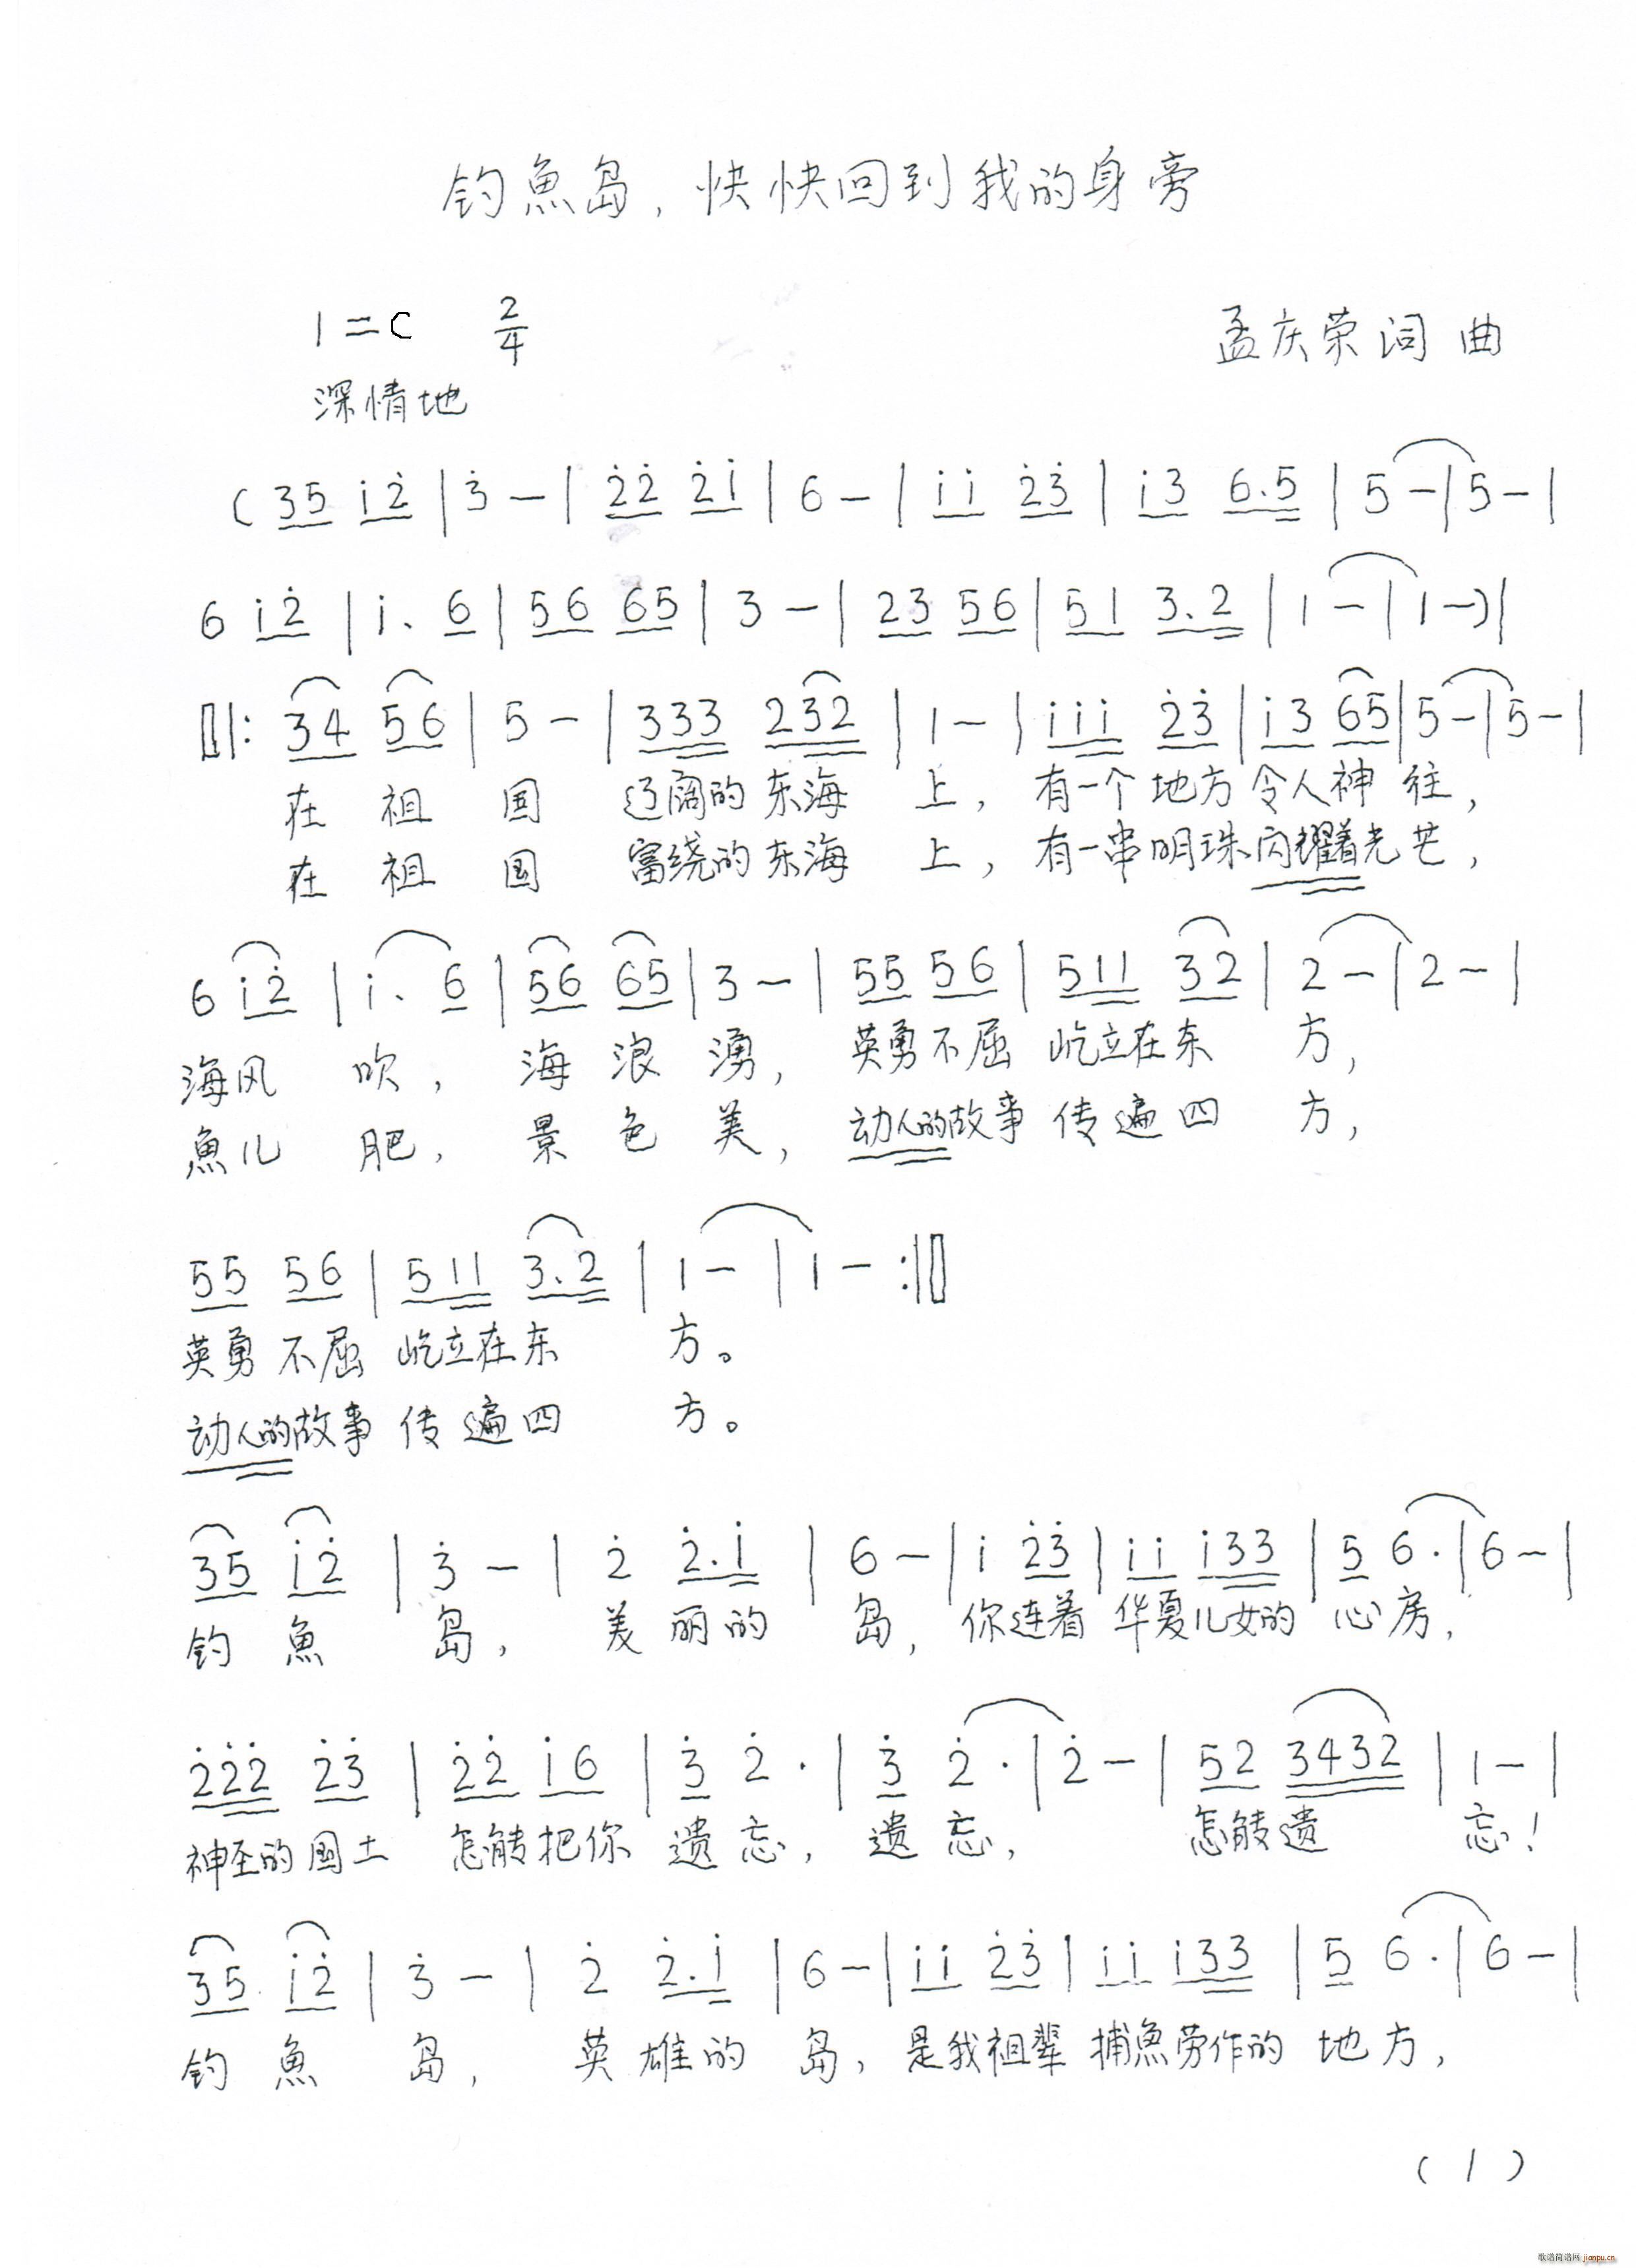 钓魚岛,快快回到我的身旁
1=C 2/4 孟庆荣词 曲
深情地
(35 i̇2̇ | 3̇ - | 2̇2̇ 2̇i̇ | 6 - | i̇i̇ 2̇3̇ | i̇3 6.5 | 5 - | 5 - |
6 i̇2̇ | i̇. 6 | 56 65 | 3 - | 23 56 | 51 3.2 | 1 - | 1 -) |
‖: 34 56 | 5 - | 333 232 | 1 - | i̇i̇i̇ 2̇3̇ | i̇3 65 | 5 - | 5 - |
在 祖 国 辽阔的 东海 上, 有一个 地方 令人神 往,
在 祖 国 富绕的 东海 上, 有一串明珠闪耀着光 芒,
6 i̇2̇ | i̇. 6 | 56 65 | 3 - | 55 56 | 511 32 | 2 - | 2 - |
海风 吹, 海 浪 湧, 英勇不屈 屹立在东 方,
魚儿 肥, 景 色 美, 动人的故事 传遍四 方,
55 56 | 511 3.2 | 1 - | 1 - :‖
英勇 不屈 屹立在东 方。
动人的故事 传 遍四 方。
35 i̇2̇ | 3̇ - | 2̇ 2̇.i̇ | 6 - | i̇ 2̇3̇ | i̇i̇ i̇33 | 5 6. | 6 - |
钓 魚 岛, 美 丽的 岛, 你连着 华夏儿女的 心房,
2̇2̇2̇ 2̇3̇ | 2̇2̇ i̇6 | 3̇ 2̇. | 3̇ 2̇. | 2̇ - | 52 3432 | 1 - |
神圣的国土 怎能把你 遗忘, 遗忘, 怎能遗 忘!
35 i̇2̇ | 3̇ - | 2̇ 2̇.i̇ | 6 - | i̇i̇ 2̇3̇ | i̇i̇ i̇33 | 5 6. | 6 - |
钓 魚 岛, 英雄的 岛, 是我祖辈 捕魚劳作的 地方,
(1)
歌谱简谱网 jianpu.cn